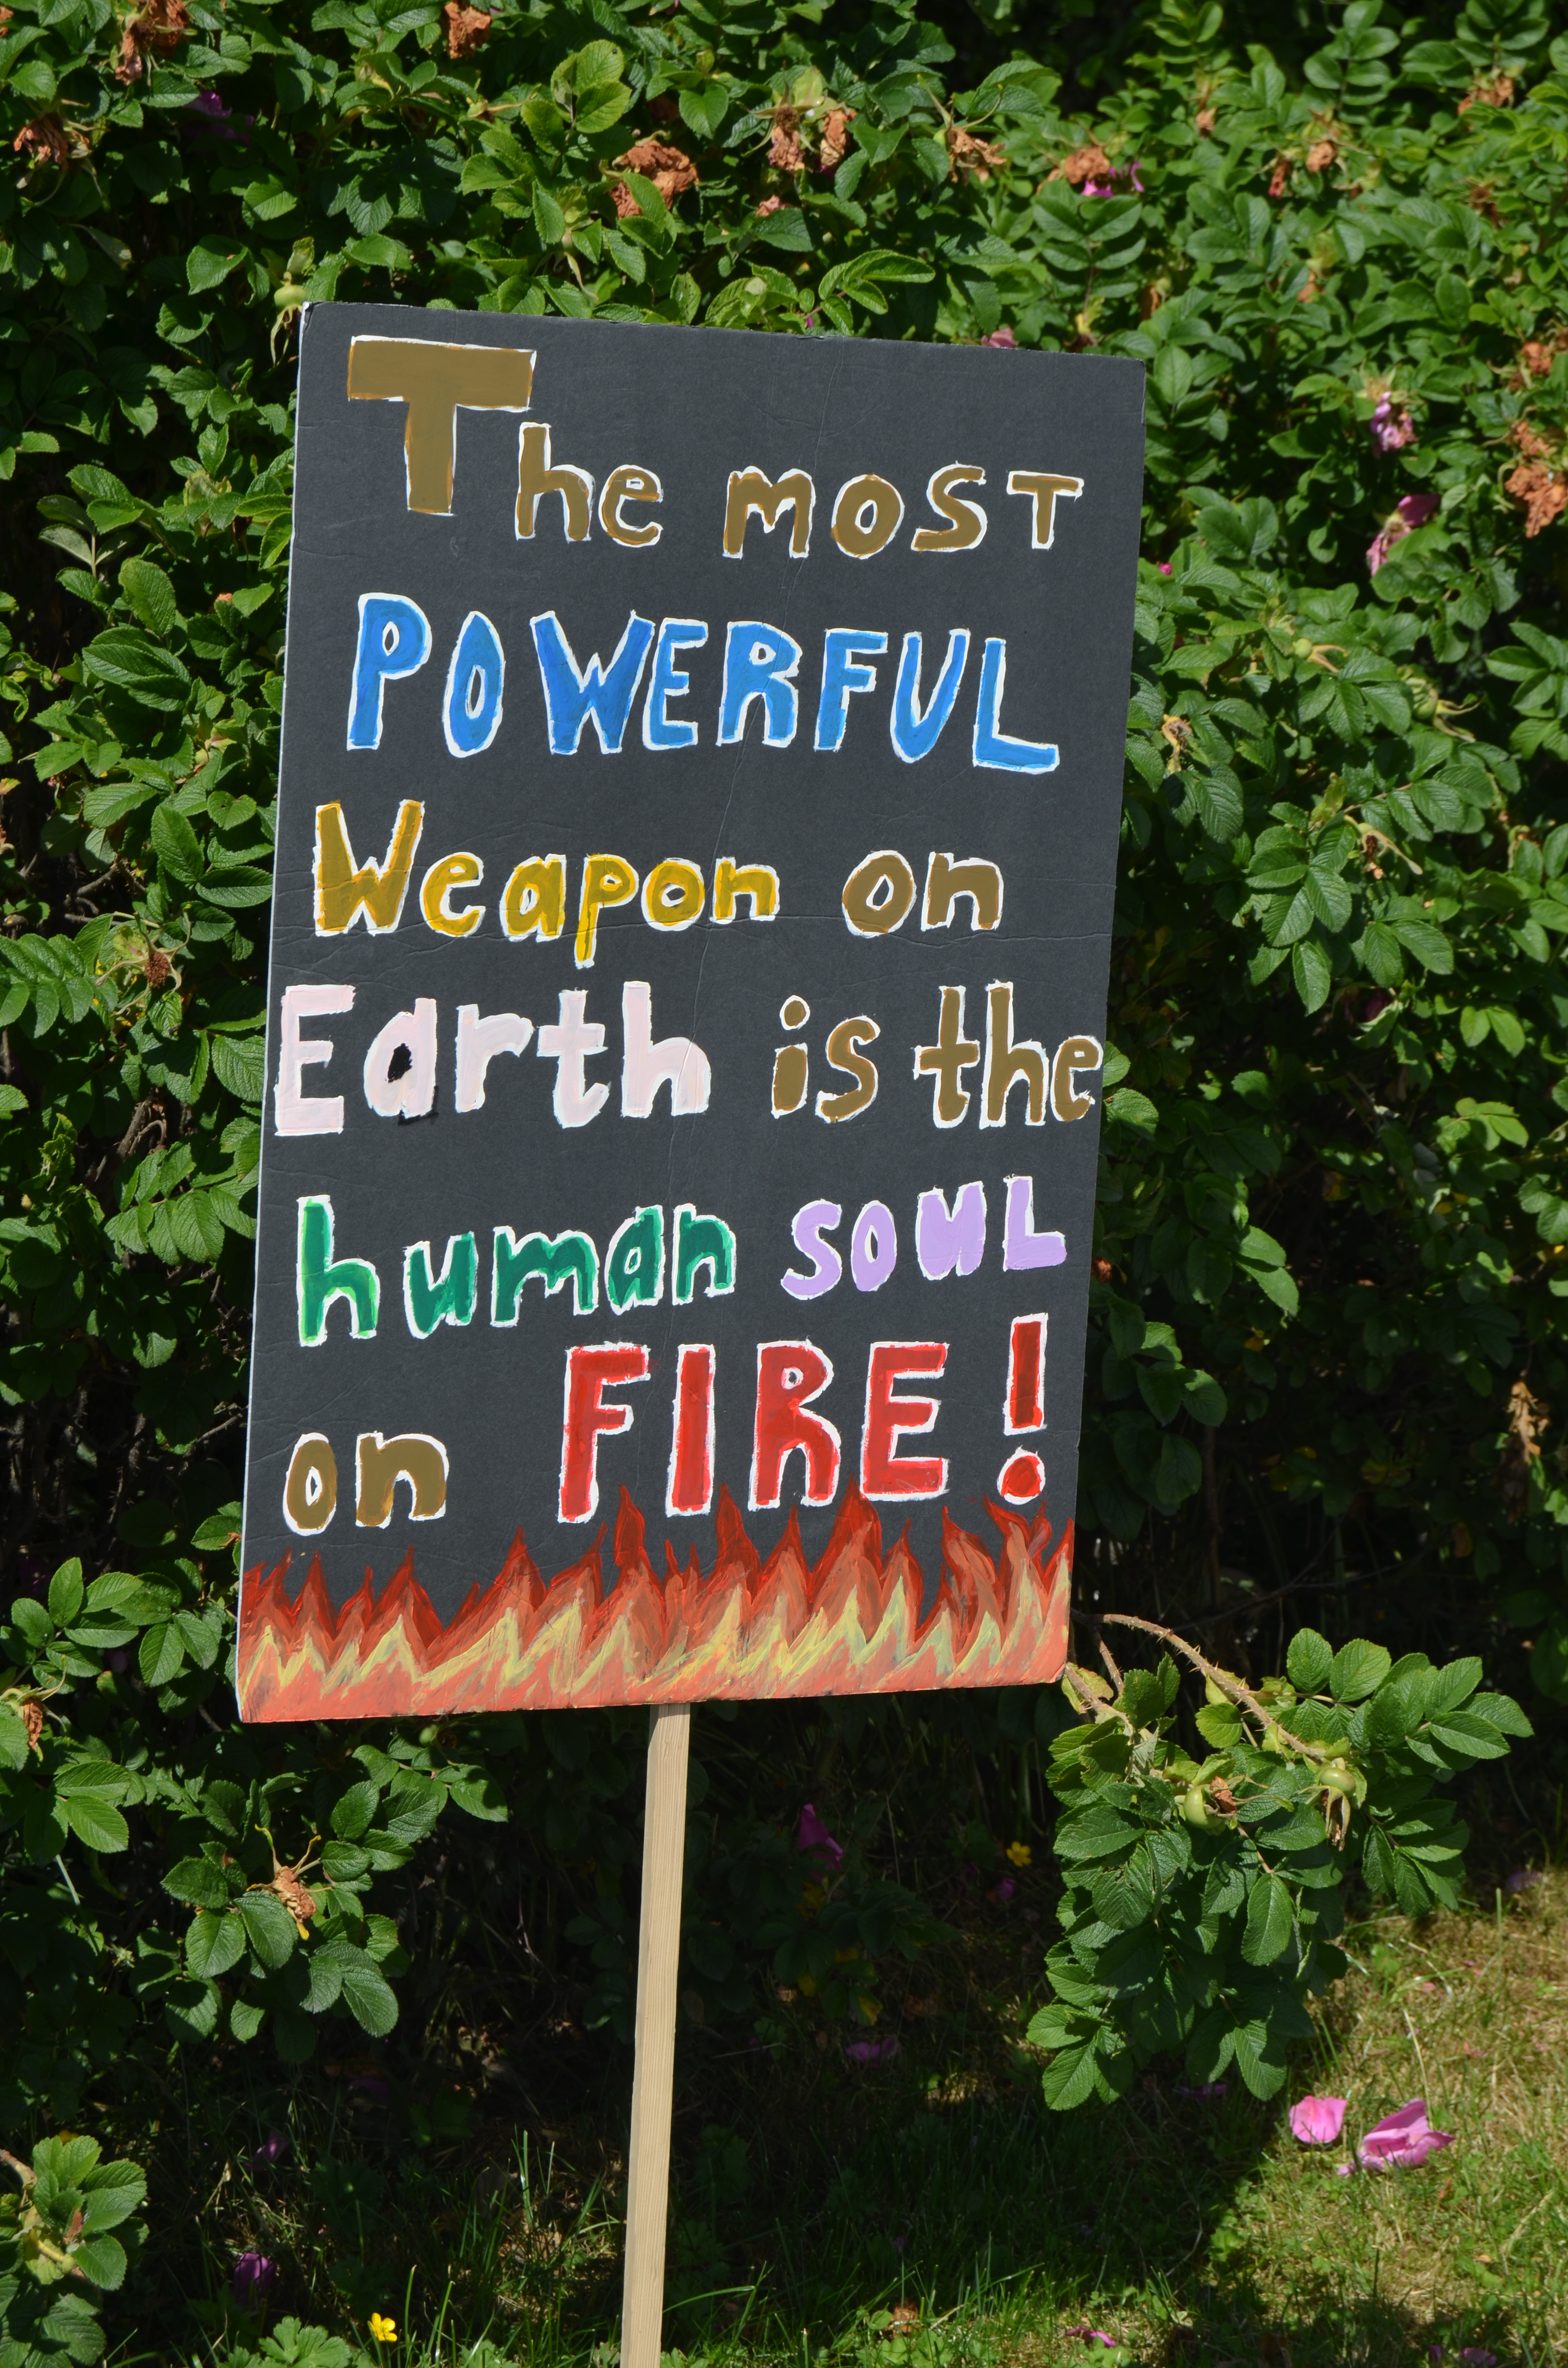 The most
POWERFUL
Weapon on
Earth is the
human soul
on FIRE!